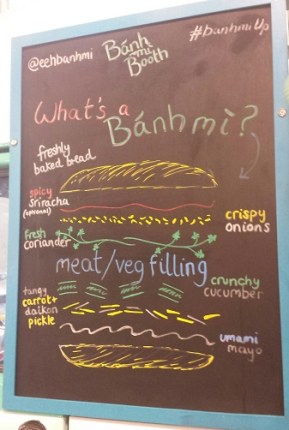 @eehbanhmi
Bánh
mì
Booth
#banhmiUp
What's a
Bánh mì?
freshly
baked bread
spicy
Sriracha
(optional)
crispy
onions
fresh
coriander
meat/veg filling
crunchy
cucumber
tangy
carrot+
daikon
pickle
umami
mayo